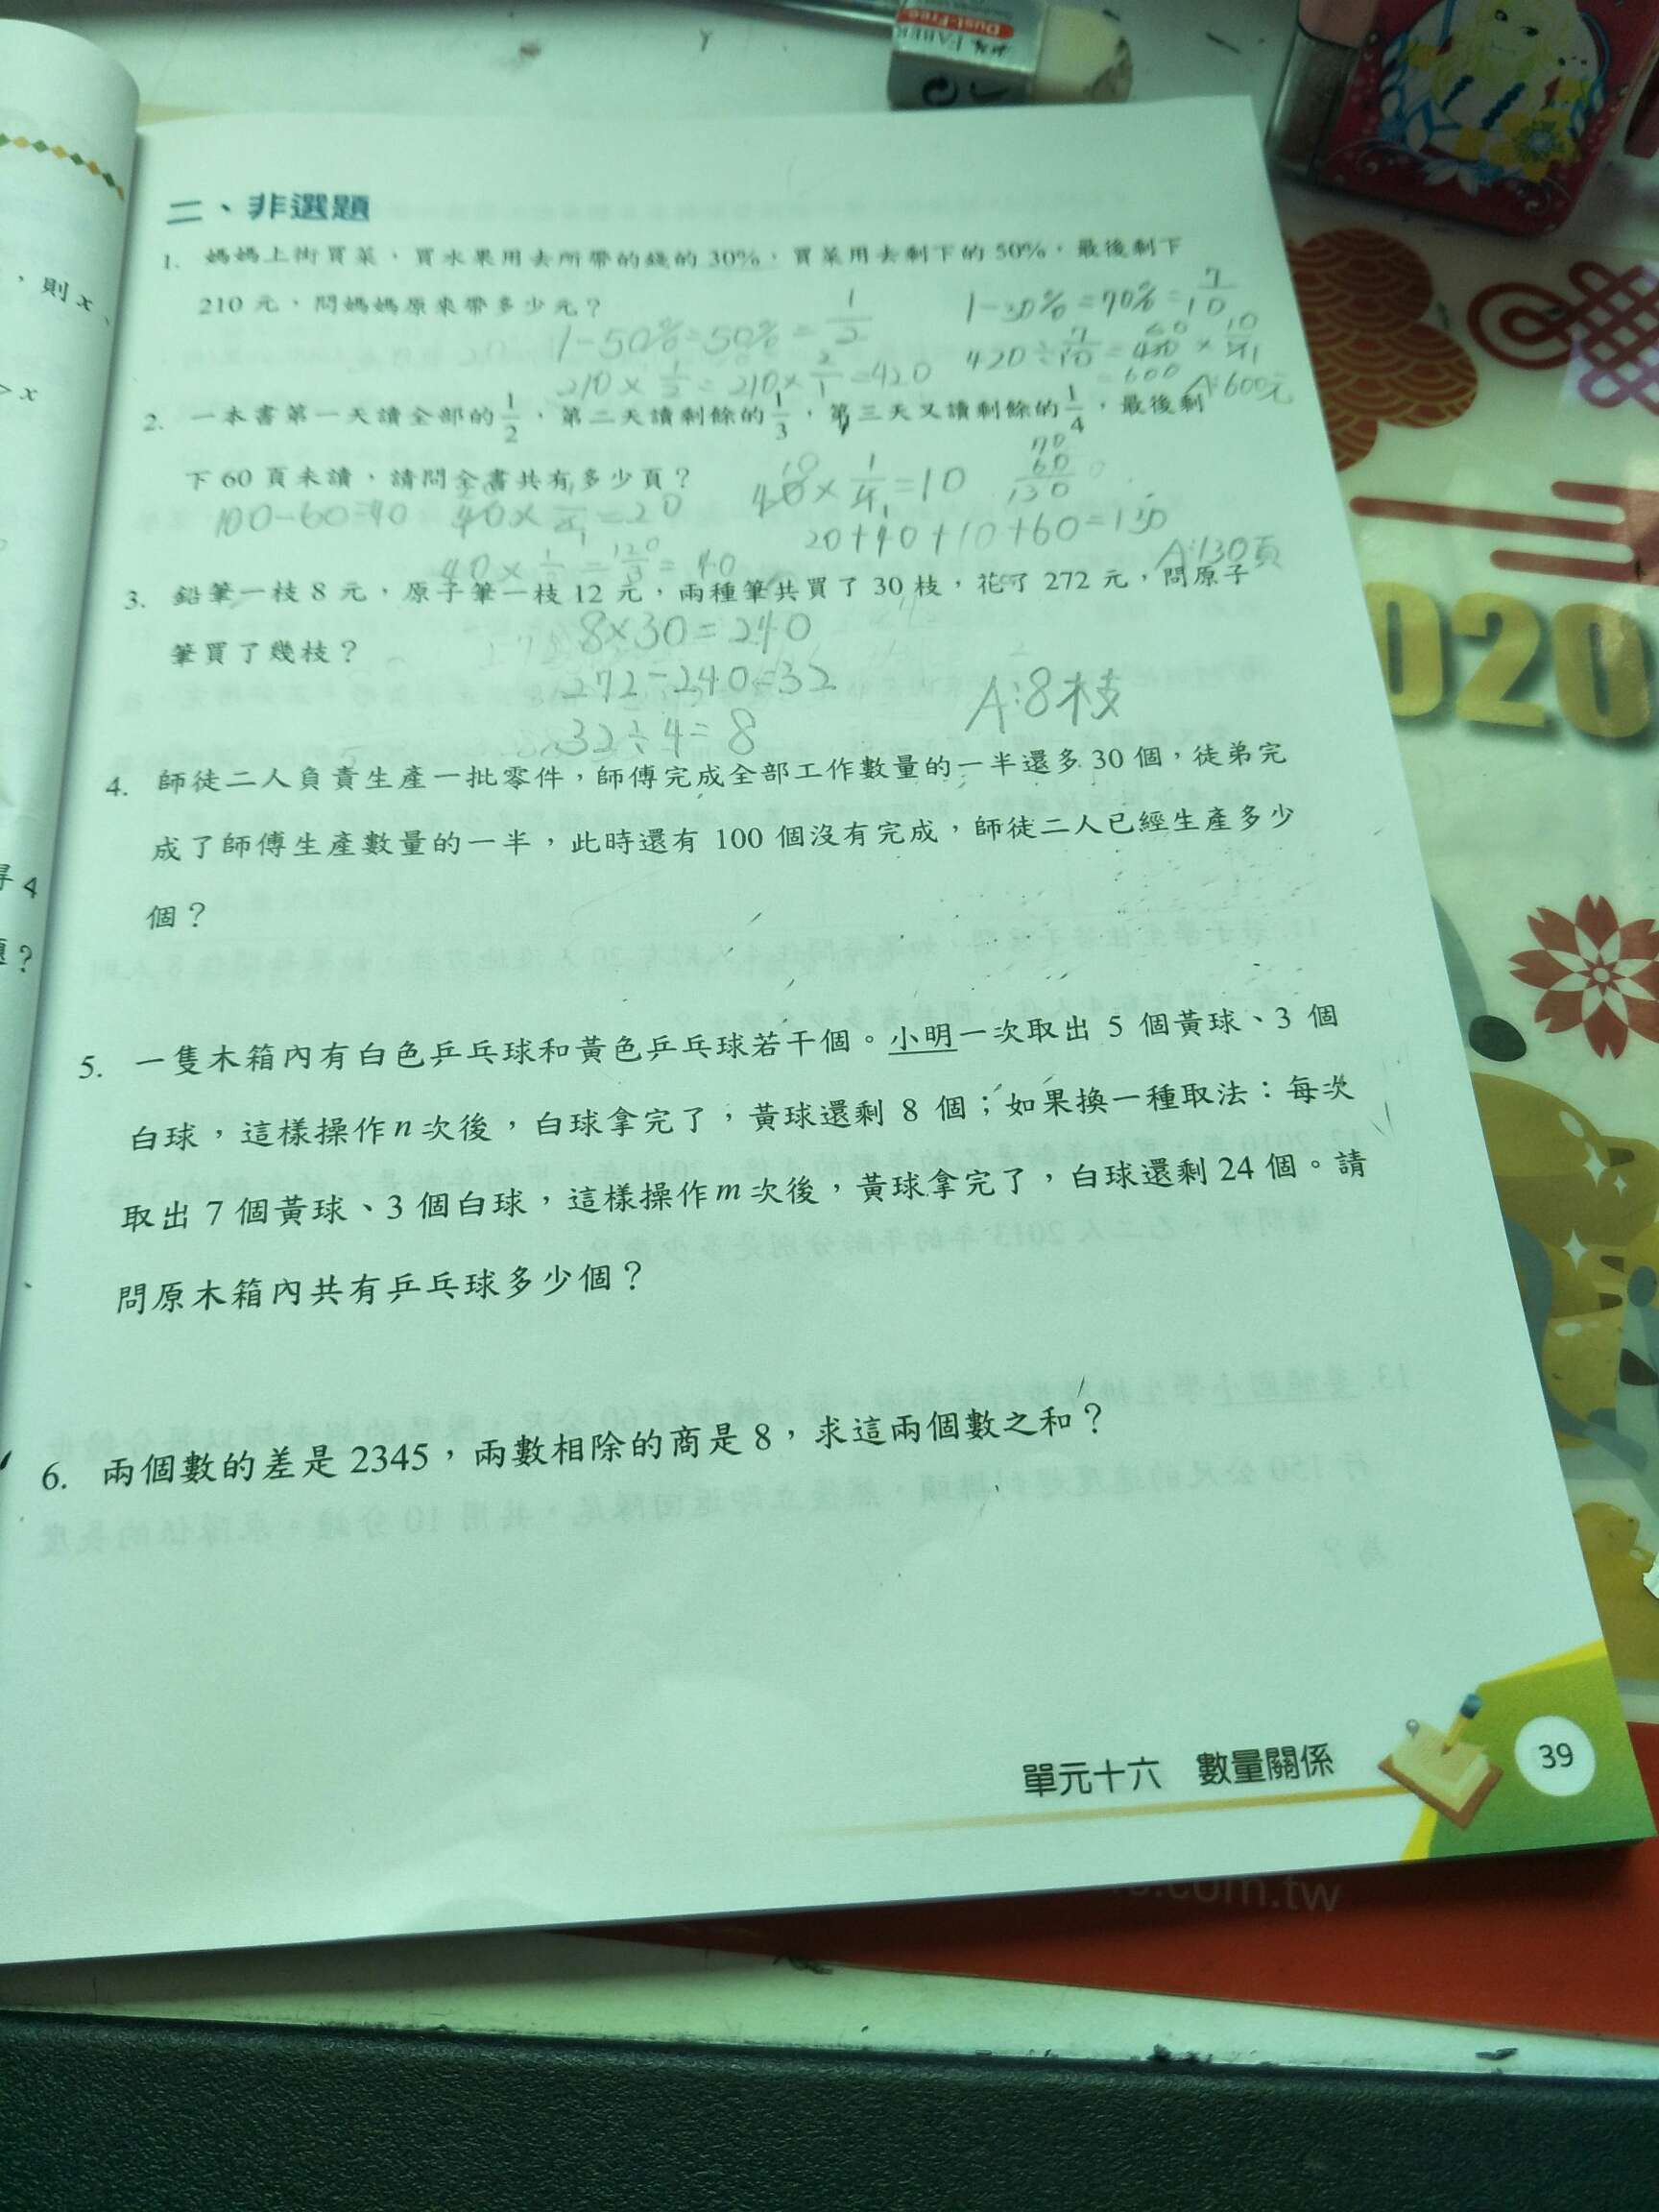 Dust-Free
FABER
二、非選題
1. 媽媽上街買菜，買水果用去所帶的錢的 30%，買菜用去剩下的 50%，最後剩下
210 元，問媽媽原來帶多少元？
1-30%=70%=7/10
1-50%=50%=1/2
420÷7/10=
210×1/2=210×2/1=420
=600
A:600元
2. 一本書第一天讀全部的 1/2，第二天讀剩餘的 1/3，第三天又讀剩餘的 1/4，最後剩
下 60 頁未讀，請問全書共有多少頁？
40×1/4=10
70
60
130
100-60=40
=20
20+40+10+60=130
=120/3=40
A:130頁
3. 鉛筆一枝 8 元，原子筆一枝 12 元，兩種筆共買了 30 枝，花了 272 元，問原子
筆買了幾枝？
8×30=240
272-240=32
32÷4=8
A:8枝
4. 師徒二人負責生產一批零件，師傅完成全部工作數量的一半還多 30 個，徒弟完
成了師傅生產數量的一半，此時還有 100 個沒有完成，師徒二人已經生產多少
個？
5. 一隻木箱內有白色乒乓球和黃色乒乓球若干個。小明一次取出 5 個黃球、3 個
白球，這樣操作 n 次後，白球拿完了，黃球還剩 8 個；如果換一種取法：每次
取出 7 個黃球、3 個白球，這樣操作 m 次後，黃球拿完了，白球還剩 24 個。請
問原木箱內共有乒乓球多少個？
6. 兩個數的差是 2345，兩數相除的商是 8，求這兩個數之和？
單元十六 數量關係
39
，則 x、
> x
4
？
020
.com.tw